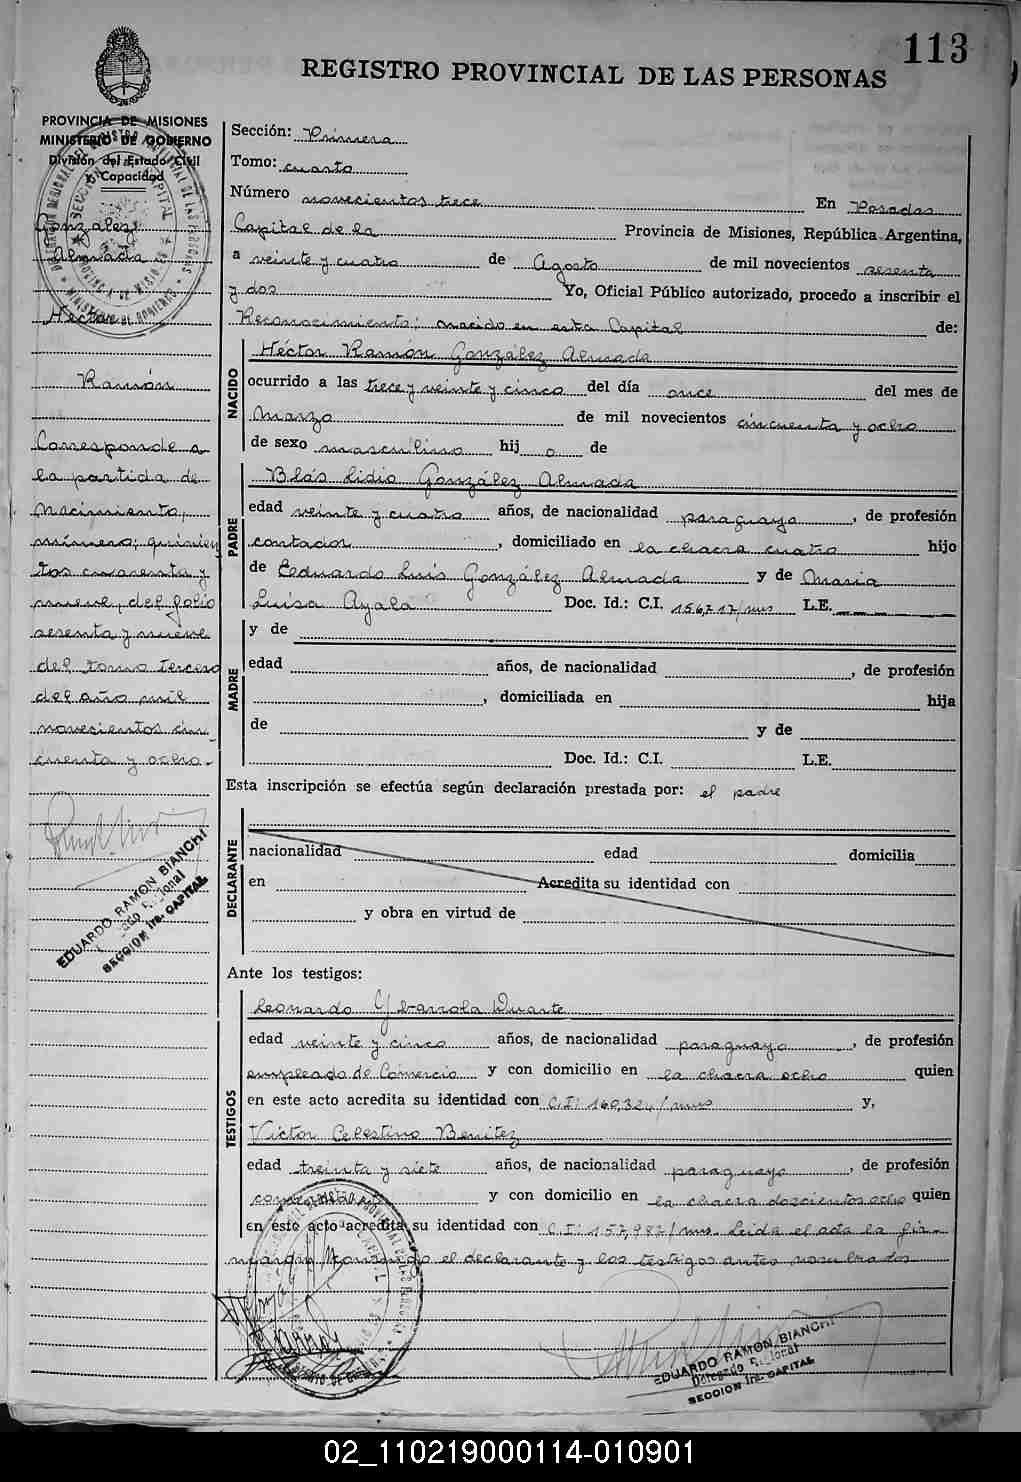 113
REGISTRO PROVINCIAL DE LAS PERSONAS
PROVINCIA DE MISIONES
MINISTERIO DE GOBIERNO
División del Estado Civil
y Capacidad
González
Almada
Héctor
Ramón
Corresponde a
la partida de
nacimiento,
número; quinien
tos cuarenta y
nueve, del folio
sesenta y nueve
del tomo tercero
del año mil
novecientos cin-
cuenta y ocho.-
EDUARDO RAMON BIANCHI
SECCION 1ra. CAPITAL
Sección: Primera
Tomo: cuarto
Número novecientos trece En Posadas
Capital de la Provincia de Misiones, República Argentina,
a veinte y cuatro de Agosto de mil novecientos sesenta
y dos Yo, Oficial Público autorizado, procedo a inscribir el
Reconocimiento; nacido en esta Capital de:
NACIDO
Héctor Ramón González Almada
ocurrido a las trece y veinte y cinco del día once del mes de
Marzo de mil novecientos cincuenta y ocho
de sexo masculino hij o de
PADRE
Blás Lidio González Almada
edad veinte y cuatro años, de nacionalidad paraguayo, de profesión
contador, domiciliado en la chacra cuatro hijo
de Eduardo Luis González Almada y de María
Luisa Ayala Doc. Id.: C.I. 156,717/mns L.E.
MADRE
y de
edad años, de nacionalidad , de profesión
, domiciliada en hija
de y de
Doc. Id.: C.I. L.E.
Esta inscripción se efectúa según declaración prestada por: el padre
DECLARANTE
nacionalidad edad domicilia
en Acredita su identidad con
y obra en virtud de
Ante los testigos:
TESTIGOS
Leonardo Ybarrola Duarte
edad veinte y cinco años, de nacionalidad paraguayo, de profesión
empleado de Comercio y con domicilio en la chacra ocho quien
en este acto acredita su identidad con C.I: 160,324/mns y,
Víctor Celestino Benítez
edad treinta y siete años, de nacionalidad paraguayo, de profesión
y con domicilio en la chacra doscientos ocho quien
en este acto acredita su identidad con C.I: 157,987/mns. Leida el acta la fir-
maron conmigo el declarante y los testigos antes nombrados
EDUARDO RAMON BIANCHI
Delegado Regional
SECCION 1ra. CAPITAL
02_110219000114-010901